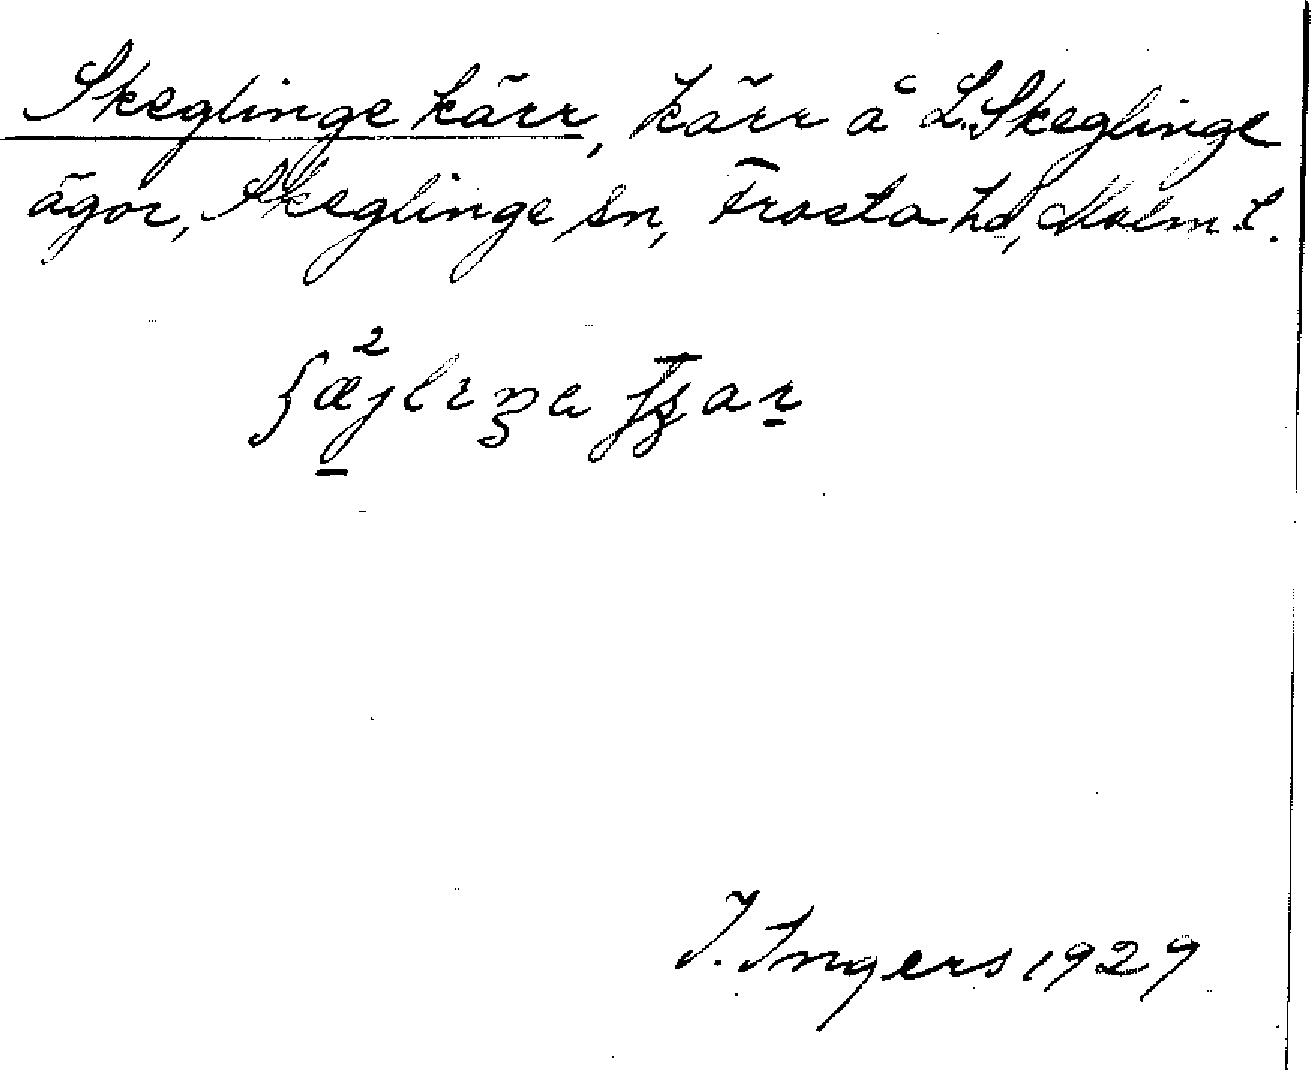 Skeglinge kärr, kärr å L. Skeglinge
ägor, Skeglinge sn, Frosta hd, Malm. L.
J. Ingers 1929